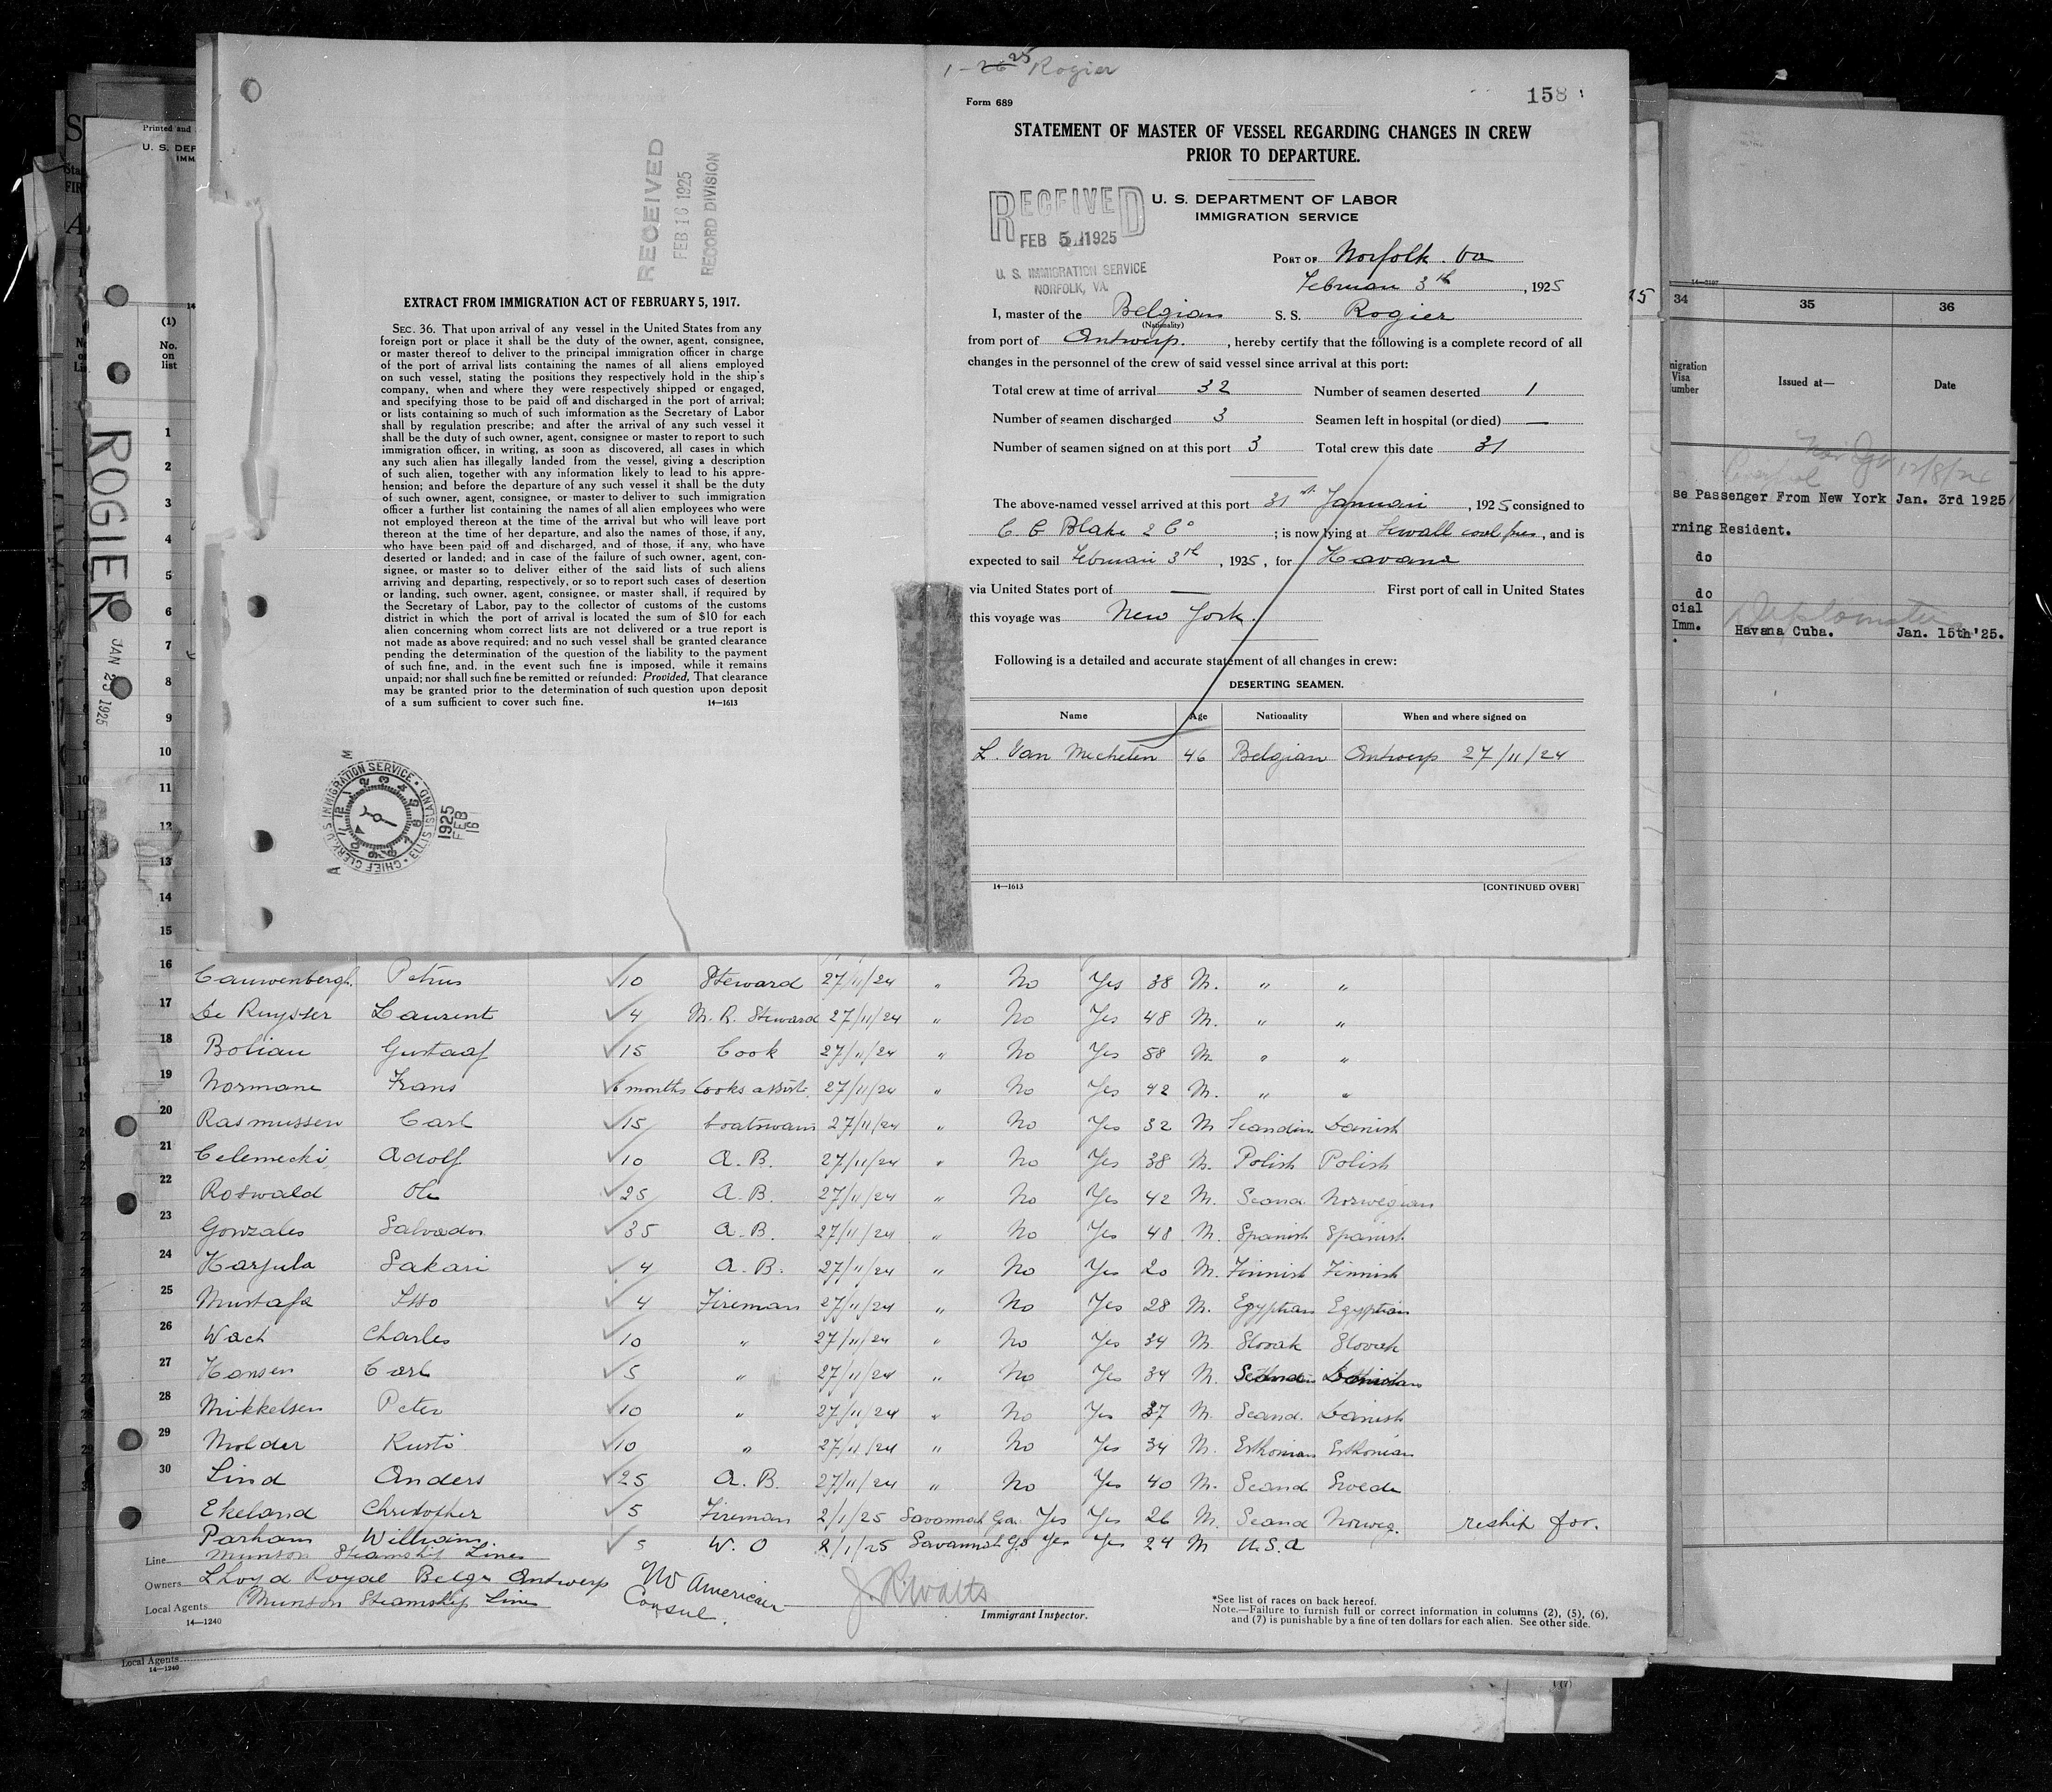 1-26 25 Rogier
Form 689
158
STATEMENT OF MASTER OF VESSEL REGARDING CHANGES IN CREW
PRIOR TO DEPARTURE.
U. S. DEPARTMENT OF LABOR
IMMIGRATION SERVICE
RECEIVED
FEB 5 1925
U. S. IMMIGRATION SERVICE
NORFOLK, VA.
PORT OF Norfolk. Va
Februari 3th, 1925
I, master of the Belgian S. S. Rogier
(Nationality)
from port of Antwerp., hereby certify that the following is a complete record of all
changes in the personnel of the crew of said vessel since arrival at this port:
Total crew at time of arrival 32 Number of seamen deserted 1
Number of seamen discharged 3 Seamen left in hospital (or died) —
Number of seamen signed on at this port 3 Total crew this date 31
The above-named vessel arrived at this port 31st Januari, 1925 consigned to
C. E Blake & Co; is now lying at Sewall coal pier, and is
expected to sail Februari 3th, 1925, for Havana
via United States port of — First port of call in United States
this voyage was New York.
Following is a detailed and accurate statement of all changes in crew:
DESERTING SEAMEN.
Name Age Nationality When and where signed on
L. Van Mechelen 46 Belgian Antwerp 27/11/24
14—1613 [CONTINUED OVER]
RECEIVED
FEB 16 1925
RECORD DIVISION
EXTRACT FROM IMMIGRATION ACT OF FEBRUARY 5, 1917.
SEC. 36. That upon arrival of any vessel in the United States from any
foreign port or place it shall be the duty of the owner, agent, consignee,
or master thereof to deliver to the principal immigration officer in charge
of the port of arrival lists containing the names of all aliens employed
on such vessel, stating the positions they respectively hold in the ship's
company, when and where they were respectively shipped or engaged,
and specifying those to be paid off and discharged in the port of arrival;
or lists containing so much of such imformation as the Secretary of Labor
shall by regulation prescribe; and after the arrival of any such vessel it
shall be the duty of such owner, agent, consignee or master to report to such
immigration officer, in writing, as soon as discovered, all cases in which
any such alien has illegally landed from the vessel, giving a description
of such alien, together with any information likely to lead to his appre-
hension; and before the departure of any such vessel it shall be the duty
of such owner, agent, consignee, or master to deliver to such immigration
officer a further list containing the names of all alien employees who were
not employed thereon at the time of the arrival but who will leave port
thereon at the time of her departure, and also the names of those, if any,
who have been paid off and discharged, and of those, if any, who have
deserted or landed; and in case of the failure of such owner, agent, con-
signee, or master so to deliver either of the said lists of such aliens
arriving and departing, respectively, or so to report such cases of desertion
or landing, such owner, agent, consignee, or master shall, if required by
the Secretary of Labor, pay to the collector of customs of the customs
district in which the port of arrival is located the sum of $10 for each
alien concerning whom correct lists are not delivered or a true report is
not made as above required; and no such vessel shall be granted clearance
pending the determination of the question of the liability to the payment
of such fine, and, in the event such fine is imposed, while it remains
unpaid; nor shall such fine be remitted or refunded: Provided, That clearance
may be granted prior to the determination of such question upon deposit
of a sum sufficient to cover such fine. 14—1613
CHIEF CLERK, U.S. IMMIGRATION SERVICE ELLIS ISLAND
1925
FEB
16
Printed and
U. S. DEP
IMM
(1)
No.
on
list
ROGIER
JAN 29 1925
1
2
3
4
5
6
7
8
9
10
11
12
13
14
15
34 35 36
migration
Visa
umber
Issued at—
Date
12/8/24
se Passenger From New York Jan. 3rd 1925
rning Resident.
do
do
cial
Imm.
Diplomatic
Havana Cuba. Jan. 15th'25.
16 Cauwenbergh. Petrus 10 Steward 27/11/24 " No Yes 38 M. " "
17 De Ruysser Laurent 4 M. R. Steward 27/11/24 " No Yes 48 M. " "
18 Bolian Gustaaf 15 Cook 27/11/24 " No Yes 58 M. " "
19 Normane Frans 6 months Cooks assist. 27/11/24 " No Yes 42 M. " "
20 Rasmussen Carl 15 boatswain 27/11/24 " No Yes 32 M Scandin Danish
21 Celemecki Adolf 10 A. B. 27/11/24 " No Yes 38 M. Polish Polish
22 Roswald Ole 25 A. B. 27/11/24 " No Yes 42 M. Scand. Norwegian
23 Gonzales Salvador 35 A. B. 27/11/24 " No Yes 48 M. Spanish Spanish
24 Karjula Sakari 4 A. B. 27/11/24 " No Yes 20 M. Finnish Finnish
25 Mustafa Isso 4 Fireman 27/11/24 " No Yes 28 M. Egyptian Egyptian
26 Wach Charles 10 " 27/11/24 " No Yes 34 M. Slovak Slovak
27 Hansen Carl 5 " 27/11/24 " No Yes 34 M.
28 Mikkelsen Peter 10 " 27/11/24 " No Yes 37 M. Scand. Danish
29 Molder Rusti 10 " 27/11/24 " No Yes 34 M. Esthonian Esthonian
30 Lind Anders 25 A. B. 27/11/24 " No Yes 40 M. Scand Swede
Ekeland Christopher 5 Fireman 2/1/25 Savannah Ga. Yes Yes 26 M. Scand Norweg. reship for.
Parham William 5 W. O 2/1/25 Savannah Ga Yes Yes 24 M U.S.A
Line Munson Steamship Lines
Owners Lloyd Royal Belge Antwerp
Local Agents Munson Steamship Line
No American
Consul.
14—1240
Immigrant Inspector.
*See list of races on back hereof.
Note.—Failure to furnish full or correct information in columns (2), (5), (6),
and (7) is punishable by a fine of ten dollars for each alien. See other side.
Local Agents
14—1240